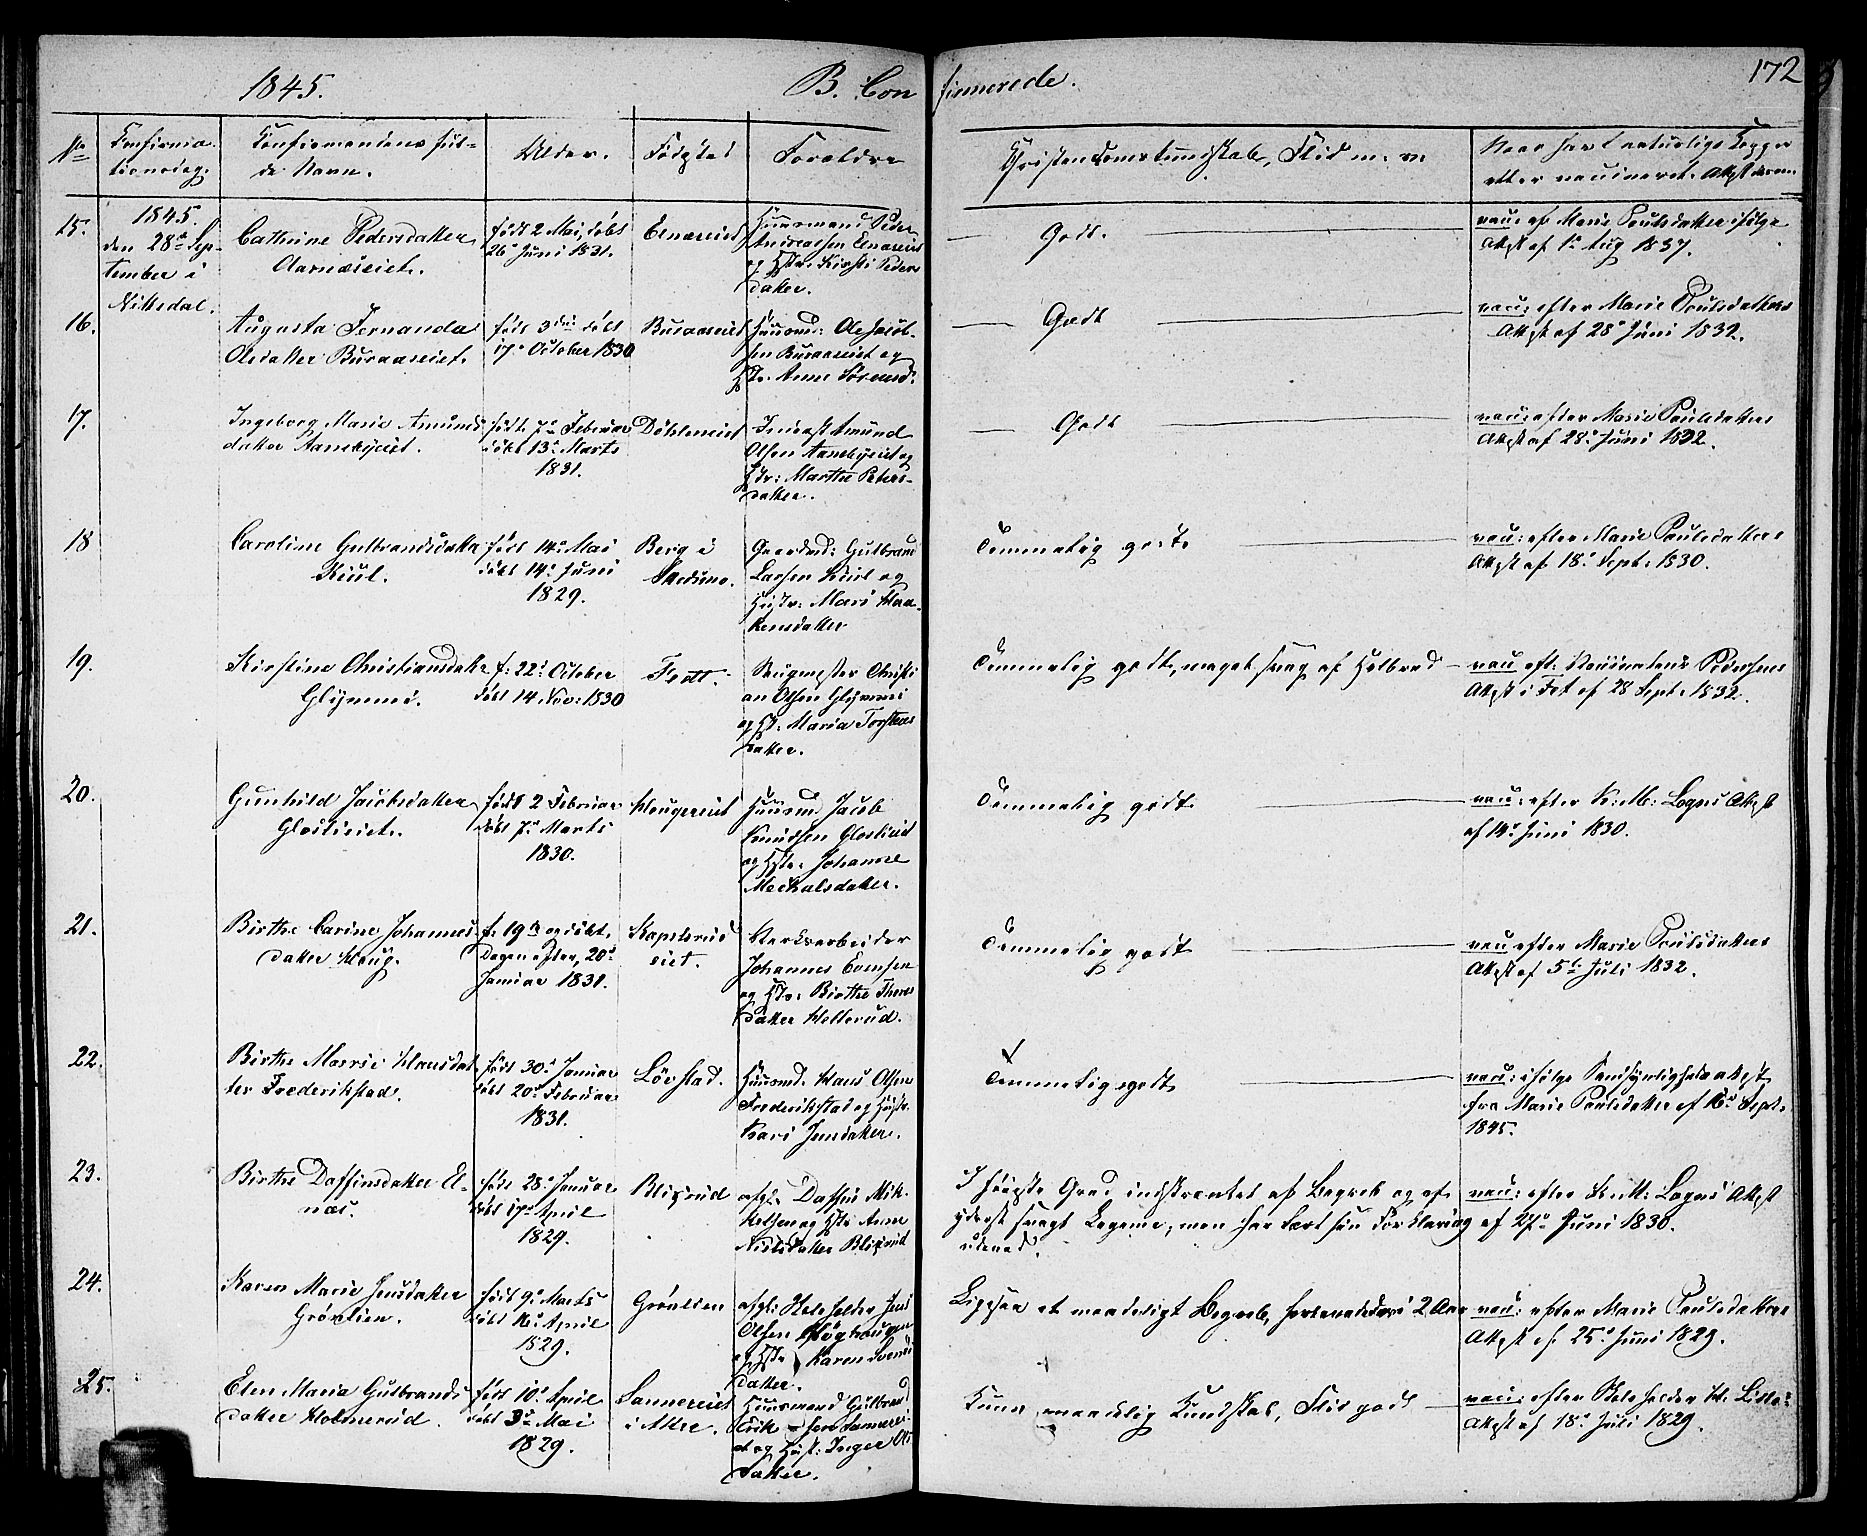 1845.
B. Con firmerede.
172
No
Confirma-
tionsdag.
Confirmandens ful-
de Navn.
Alder.
Fødested
Forældre
Christendomskundskab, Flid m. v.
Naar havt naturlige Kopper
eller vaccineret. Attest derom.
15.
1845.
den 28de Sep-
tember i
Nittedal.
Cathrine Pedersdatter
Aarnæseiet.
født 2 Mai, døbt
26de Juni 1831.
Huusmand Peder
og Hstr. Kirsti Peders
datter.
Godt.
vacc. af Marie Poulsdatter ifølge
Attest af 1ste Aug 1837.
16.
Augusta Fernanda
Olsdatter Buraaseiet.
født 3die døbt
17de October 1830
Buraaseiet
Huusmd: Ole Jacob-
sen Buraaseiet og
Hstr. Anne Sørensd.
Godt
vacc: efter Marie Poulsdatters
Attest af 28de Juni 1832.
17.
Ingeborg Marie Amunds
datter
født 7de Februar
døbt 13de Marts
1831.
Døhleneiet
Inderst Amund
Olsen
Hstr: Marthe Peters-
datter.
Godt
vacc: efter Marie Poulsdatters
Attest af 28de Juni 1832.
18
Caroline Gulbrandsdatter
Kiul.
født 14de Mai
døbt 14de Juni
1829.
Berg i
Skedsmo.
Gaardmd: Gulbrand
Larsen Kiul og
Hustr: Mari Haa-
kensdatter
Temmelig godt
vacc: efter Marie Poulsdatters
Attest af 18de Sept. 1830.
19.
Kirstine Christiansdatter
Glømmi.
f. 22de October
døbt 14 Nov: 1830
Fedt.
Saugmester Christi
an Olsen Glømmi
og Hst. Maria Torstens
datter.
Temmelig godt, meget svag af Helbred
vacc eft: Vaccinateur
Attest i Fet af 28 Sept. 1832.
20.
Gunhild Jacobsdatter
Glostieiet.
født 2 Februar
døbt 7de Marts
1830.
Haugereiet
Huusmd Jacob
Knudsen Glostieiet
og Hstr. Johanne
Mechalsdatter.
Temmelig godt
vacc: efter K: M: Logns Attest
af 14de Juni 1830.
21.
Birthe Carine Johannes
datter Haug.
f. 19de og døbt
Dagen efter, 20de
Januar 1831.
Kapelsrud
eiet.
Værksarbeider
Johannes Evensen
og Hstr. Birthe Thores
datter Hellerud.
Temmelig godt
vacc efter Marie Poulsdatters
Attest af 5te Juli 1832.
22.
Birthe Marie Hansdat
ter Frederikstad.
født 30de Januar
døbt 20de Februar
1831.
Løvstad.
Huusmd. Hans Olsen
Frederikstad og Hustr.
Kari Jensdatter.
Temmelig godt
vacc: ifølge Sandsynligheds attest
fra Marie Poulsdatter af 16de Sept.
1845.
23.
Birthe Daffinsdatter El-
næs.
født 28de Januar
døbt 17de April
1829.
Blixrud
afgl. Daffin Mik-
kelsen og Hstr Anne
Nielsdatter Blixrud
I høieste Grad indskrænket af Begreb og af
yderst svagt Legeme, men har lært sin Forklaring
udenad.
vacc: efter K: M: Logns Attest
af 27de Juni 1830.
24.
Karen Marie Jensdatter
Grønlien.
født 9de Marts
døbt 16de April
1829.
Grønlien
afgl: Jens
Olsen
og Hstr Karen Svends
datter.
Ligesaa et maadeligt Begreb, 2 Aar
vacc: efter Marie Poulsdatters
Attest af 25de Juni 1829.
25.
Elen Maria Gulbrands
datter Holmerud.
født 10de April
døbt 3die Mai
1829.
Sannereiet
i Aker.
Huusmand Gulbrand
Erik - sen Sannerei-
et og Hust: Inger Ols
datter.
Kuns maadelig Kundskab, Flid godt
vacc: efter
Attest af 18de Juli 1829.